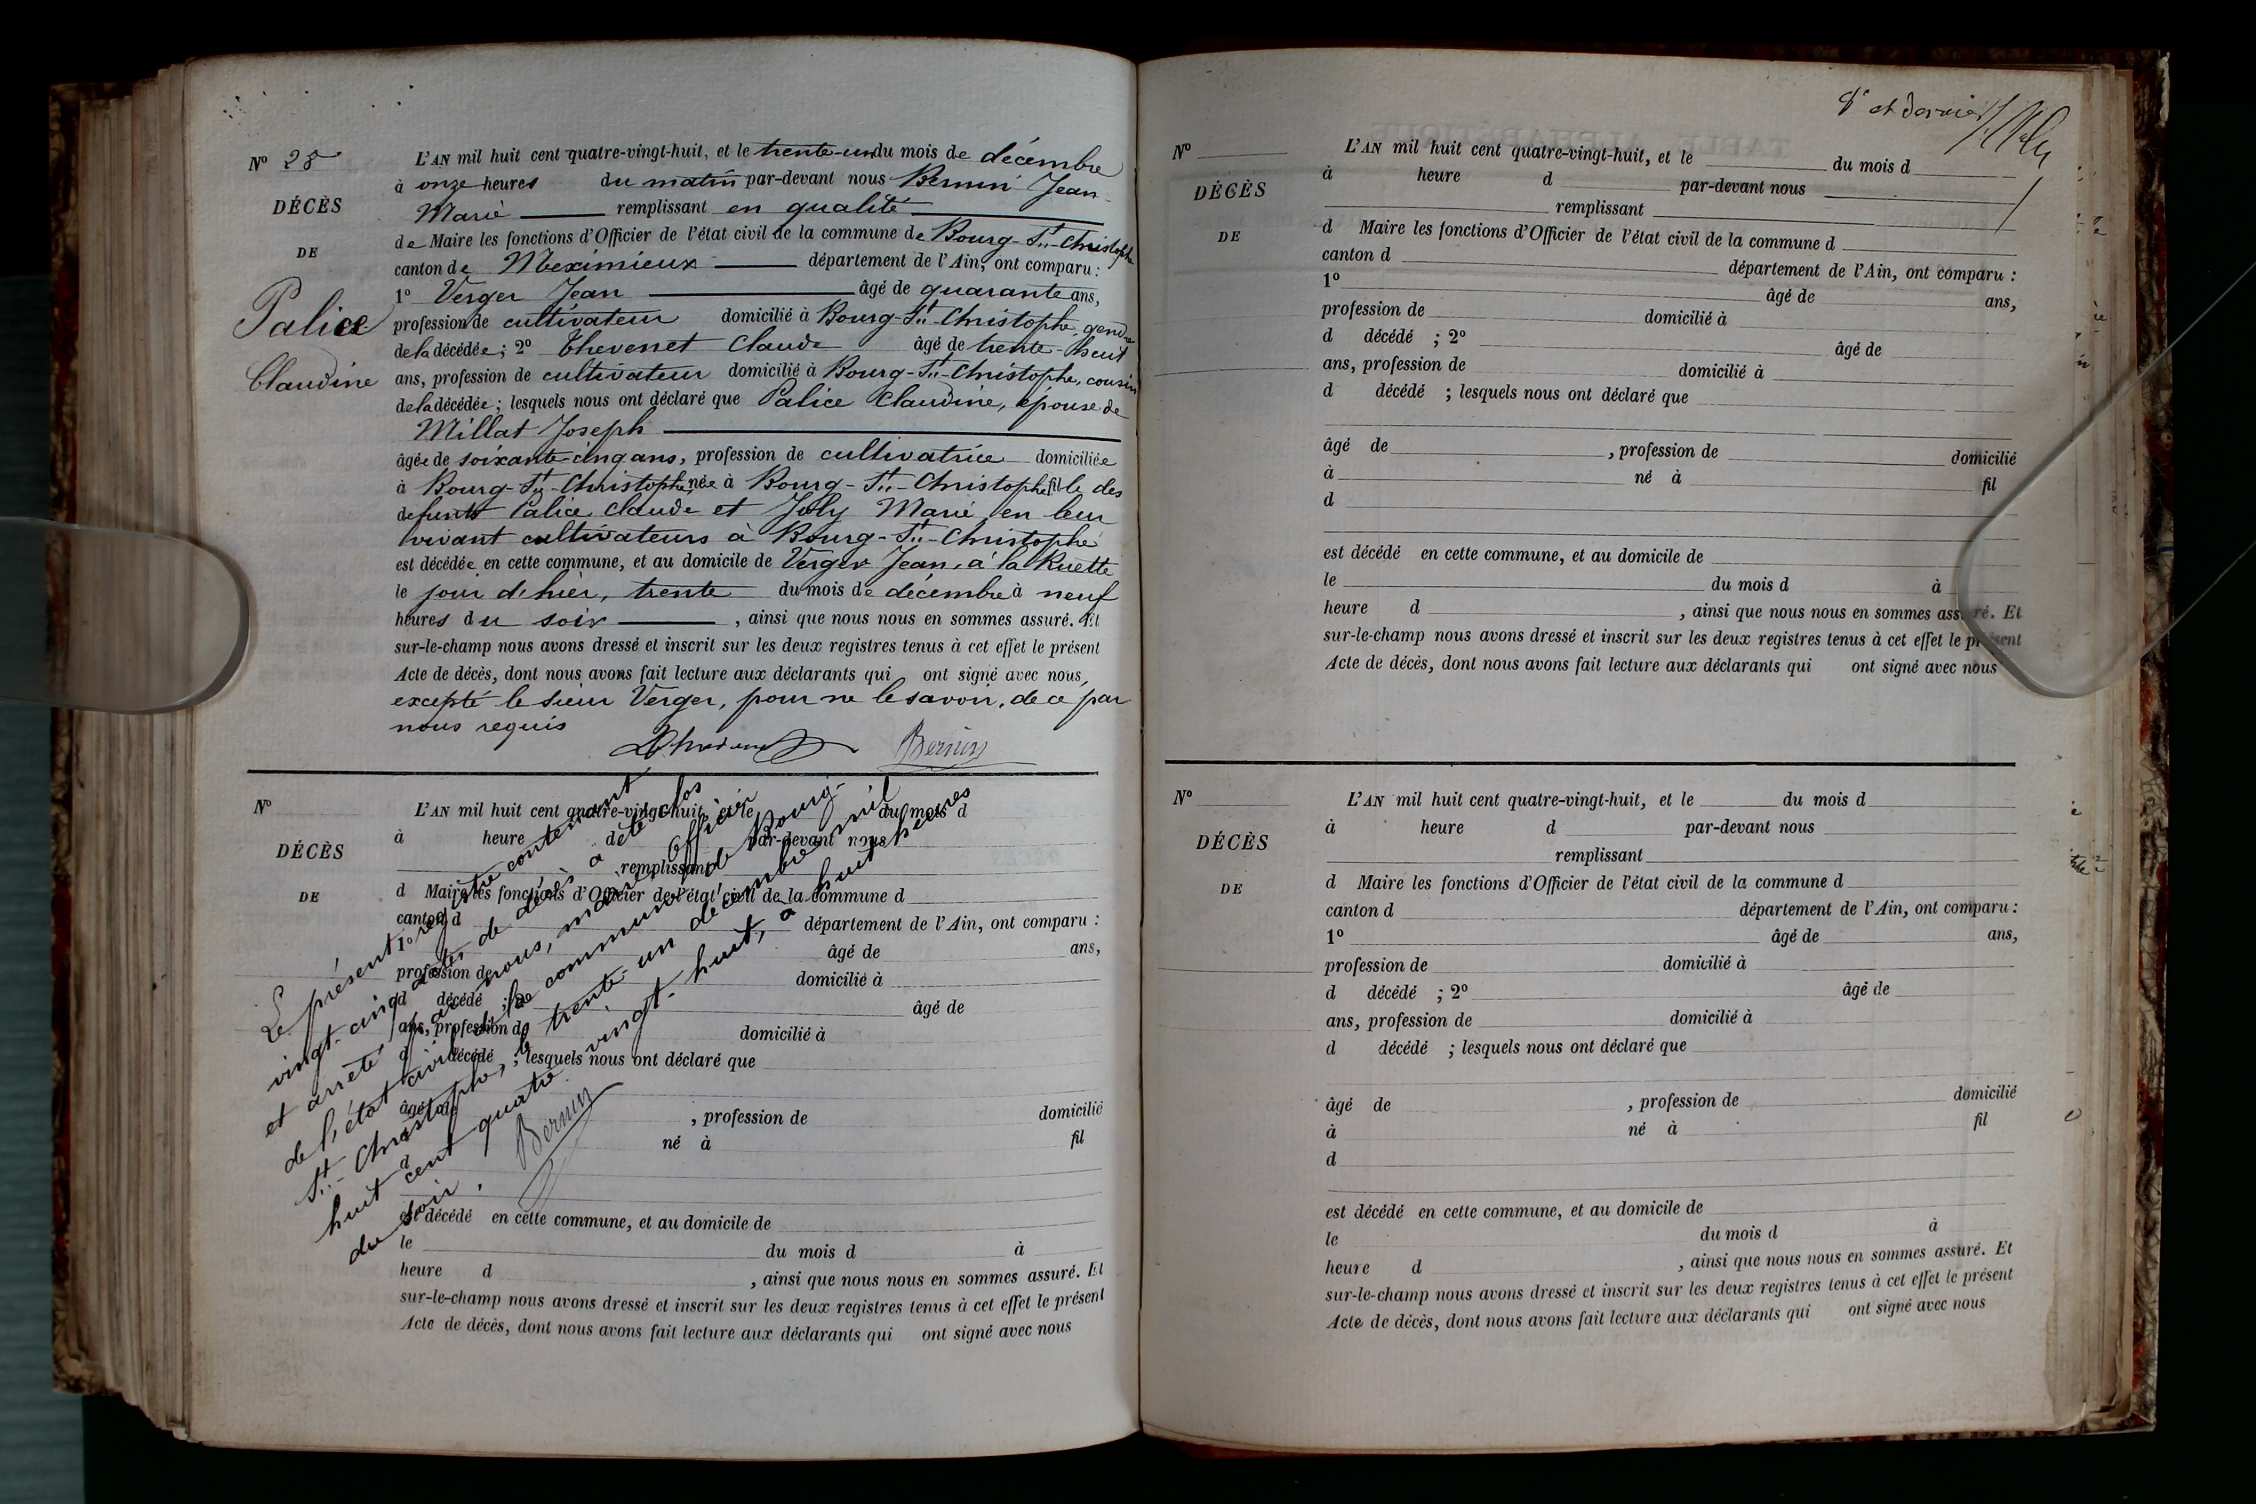 N° 25
DÉCÈS
DE
Palice
Claudine
L'AN mil huit cent quatre-vingt-huit, et le trente-un du mois de décembre
à onze heures du matin par-devant nous Bernin Jean-
Marie remplissant en qualité
de Maire les fonctions d'Officier de l'état civil de la commune de Bourg-St-Christophe
canton de Meximieux département de l'Ain, ont comparu :
1° Verger Jean âgé de quarante ans,
profession de cultivateur domicilié à Bourg-St-Christophe, gendre
de la décédée ; 2° Thevenet Claude âgé de trente-huit
ans, profession de cultivateur domicilié à Bourg-St-Christophe, cousin
de la décédée ; lesquels nous ont déclaré que Palice Claudine, épouse de
Millat Joseph
âgée de soixante-cinq ans, profession de cultivatrice domiciliée
à Bourg-St-Christophe, née à Bourg-St-Christophe fille des
defunts Palice Claude et Joly Marie en leur
vivant cultivateurs à Bourg-St-Christophe
est décédée en cette commune, et au domicile de Verger Jean, à la Ruette
le jour d'hier, trente du mois de décembre à neuf
heures du soir , ainsi que nous nous en sommes assuré. Et
sur-le-champ nous avons dressé et inscrit sur les deux registres tenus à cet effet le présent
Acte de décès, dont nous avons fait lecture aux déclarants qui ont signé avec nous
excepté le sieur Verger, pour ne le savoir, de ce par
nous requis
Bernin
N°
DÉCÈS
DE
L'AN mil huit cent quatre-vingt-huit, et le du mois d
à heure d par-devant nous
remplissant
d Maire les fonctions d'Officier de l'état civil de la commune d
canton d département de l'Ain, ont comparu :
1° âgé de ans,
profession de domicilié à
d décédé ; 2° âgé de
ans, profession de domicilié à
d décédé ; lesquels nous ont déclaré que
âgé de , profession de domicilié
à né à fil
d
est décédé en cette commune, et au domicile de
le du mois d à
heure d , ainsi que nous nous en sommes assuré. Et
sur-le-champ nous avons dressé et inscrit sur les deux registres tenus à cet effet le présent
Acte de décès, dont nous avons fait lecture aux déclarants qui ont signé avec nous
Le présent registre contenant
vingt-cinq actes de décès a été clos
et arrêté par nous, maire, officier
de l'état civil de la commune de Bourg-
St-Christophe, le trente-un décembre mil
huit cent quatre vingt-huit, à huit heures
du soir.
Bernin
8e et dernier
N°
DÉCÈS
DE
L'AN mil huit cent quatre-vingt-huit, et le du mois d
à heure d par-devant nous
remplissant
d Maire les fonctions d'Officier de l'état civil de la commune d
canton d département de l'Ain, ont comparu :
1° âgé de ans,
profession de domicilié à
d décédé ; 2° âgé de
ans, profession de domicilié à
d décédé ; lesquels nous ont déclaré que
âgé de , profession de domicilié
à né à fil
d
est décédé en cette commune, et au domicile de
le du mois d à
heure d , ainsi que nous nous en sommes assuré. Et
sur-le-champ nous avons dressé et inscrit sur les deux registres tenus à cet effet le présent
Acte de décès, dont nous avons fait lecture aux déclarants qui ont signé avec nous
N°
DÉCÈS
DE
L'AN mil huit cent quatre-vingt-huit, et le du mois d
à heure d par-devant nous
remplissant
d Maire les fonctions d'Officier de l'état civil de la commune d
canton d département de l'Ain, ont comparu :
1° âgé de ans,
profession de domicilié à
d décédé ; 2° âgé de
ans, profession de domicilié à
d décédé ; lesquels nous ont déclaré que
âgé de , profession de domicilié
à né à fil
d
est décédé en cette commune, et au domicile de
le du mois d à
heure d , ainsi que nous nous en sommes assuré. Et
sur-le-champ nous avons dressé et inscrit sur les deux registres tenus à cet effet le présent
Acte de décès, dont nous avons fait lecture aux déclarants qui ont signé avec nous